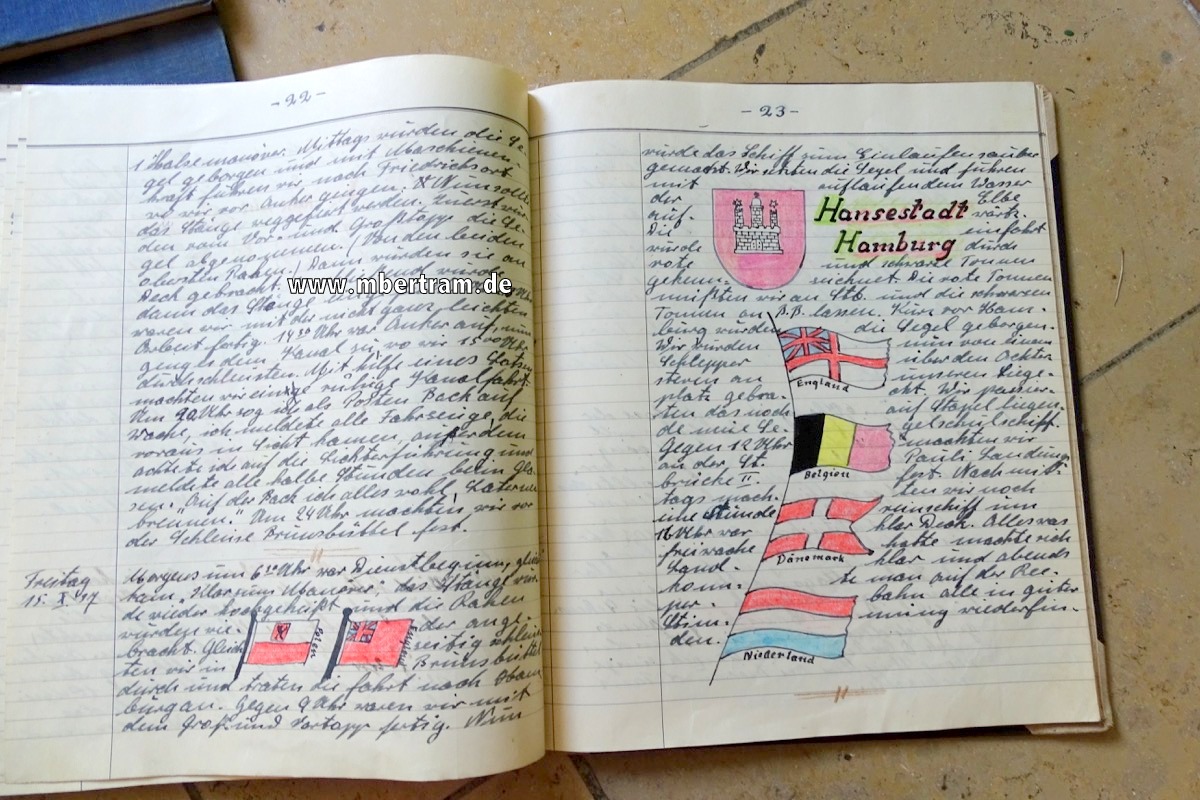 - 22 -
1 Halsemanöver. Mittags wurden die Se-
gel geborgen und mit Maschienen-
kraft fuhren wir nach Friedrichsort
wo wir vor Anker gingen. Nun sollte
das Stänge weggefiert werden. Zuerst wur-
den vom Vor- und Großtopp die Se-
gel abgenommen. (Von den beiden
obersten Rahen.) Dann wurden sie an
Deck gebracht.
dann das Stänge
waren wir mit der nicht ganz leichten
Arbeit fertig. 14³⁰ Uhr war Anker auf, nun
ging es dem Kanal zu, wo wir 15⁰⁰ Uhr
durchschleusten. Mit hilfe eines Lotsen
machten wir eine ruhige Kanalfahrt.
Um 20 Uhr zog ich als Posten Back auf
wache, ich meldete alle Fahrzeuge, die
voraus in Sicht kamen, außerdem
achtete ich auf die Lichterführung und
meldete alle halbe Stunden beim Gla-
sen: „Auf der Back ich alles wohl, Laternen
brennen." Um 24 Uhr machten wir vor
der Schleuse Brunsbübbel fest.
Freitag
15. X.
Morgens um 6³⁰ Uhr war Dienstbeginn, gleich
kam, klar zum Manöver: das Stängl wur-
de wieder hochgeheißt und die Rahen
wurden wie- der ange-
bracht. Gleich- zeitig schleus-
ten wir in Brunsbüttel
durch und traten die fahrt nach Ham-
burg an. Gegen 9 Uhr waren wir mit
dem Groß- und Vortopp fertig. Nun
Polen
www.mbertram.de
- 23 -
wurde das Schiff zum Einlaufen sauber
gemacht. Wir setzten die Segel und fuhren
mit auflaufendem Wasser
der Elbe
auf- wärts.
Die einfahrt
wurde durch
rote und schwarze Tonnen
gekenn- zeichnet. Die rote Tonnen
mußten wir an Stb. und die schwarzen
Tonnen an B.B. lassen. Kurz vor Ham-
burg wurden die Segel geborgen.
Wir wurden nun von einem
Schlepper über den Achter-
steven an unseren Liege-
platz gebra- cht. Wir passier-
ten das noch auf Stapel liegen-
de neue Se- gelschulschiff.
Gegen 12 Uhr machten wir
an der St. Pauli Landungs-
brücke II. fest. Nach mit-
tags mach- ten wir noch
eine Stunde reinschiff um
16 Uhr war klar Deck. Alles was
freiwache hatte machte sich
Land- klar und abends
konn- te man auf der Ree-
per- bahn alle in guter
Stim- mung wiederfin-
den.
Hansestadt
Hamburg
England
Belgien
Dänemark
Niederland